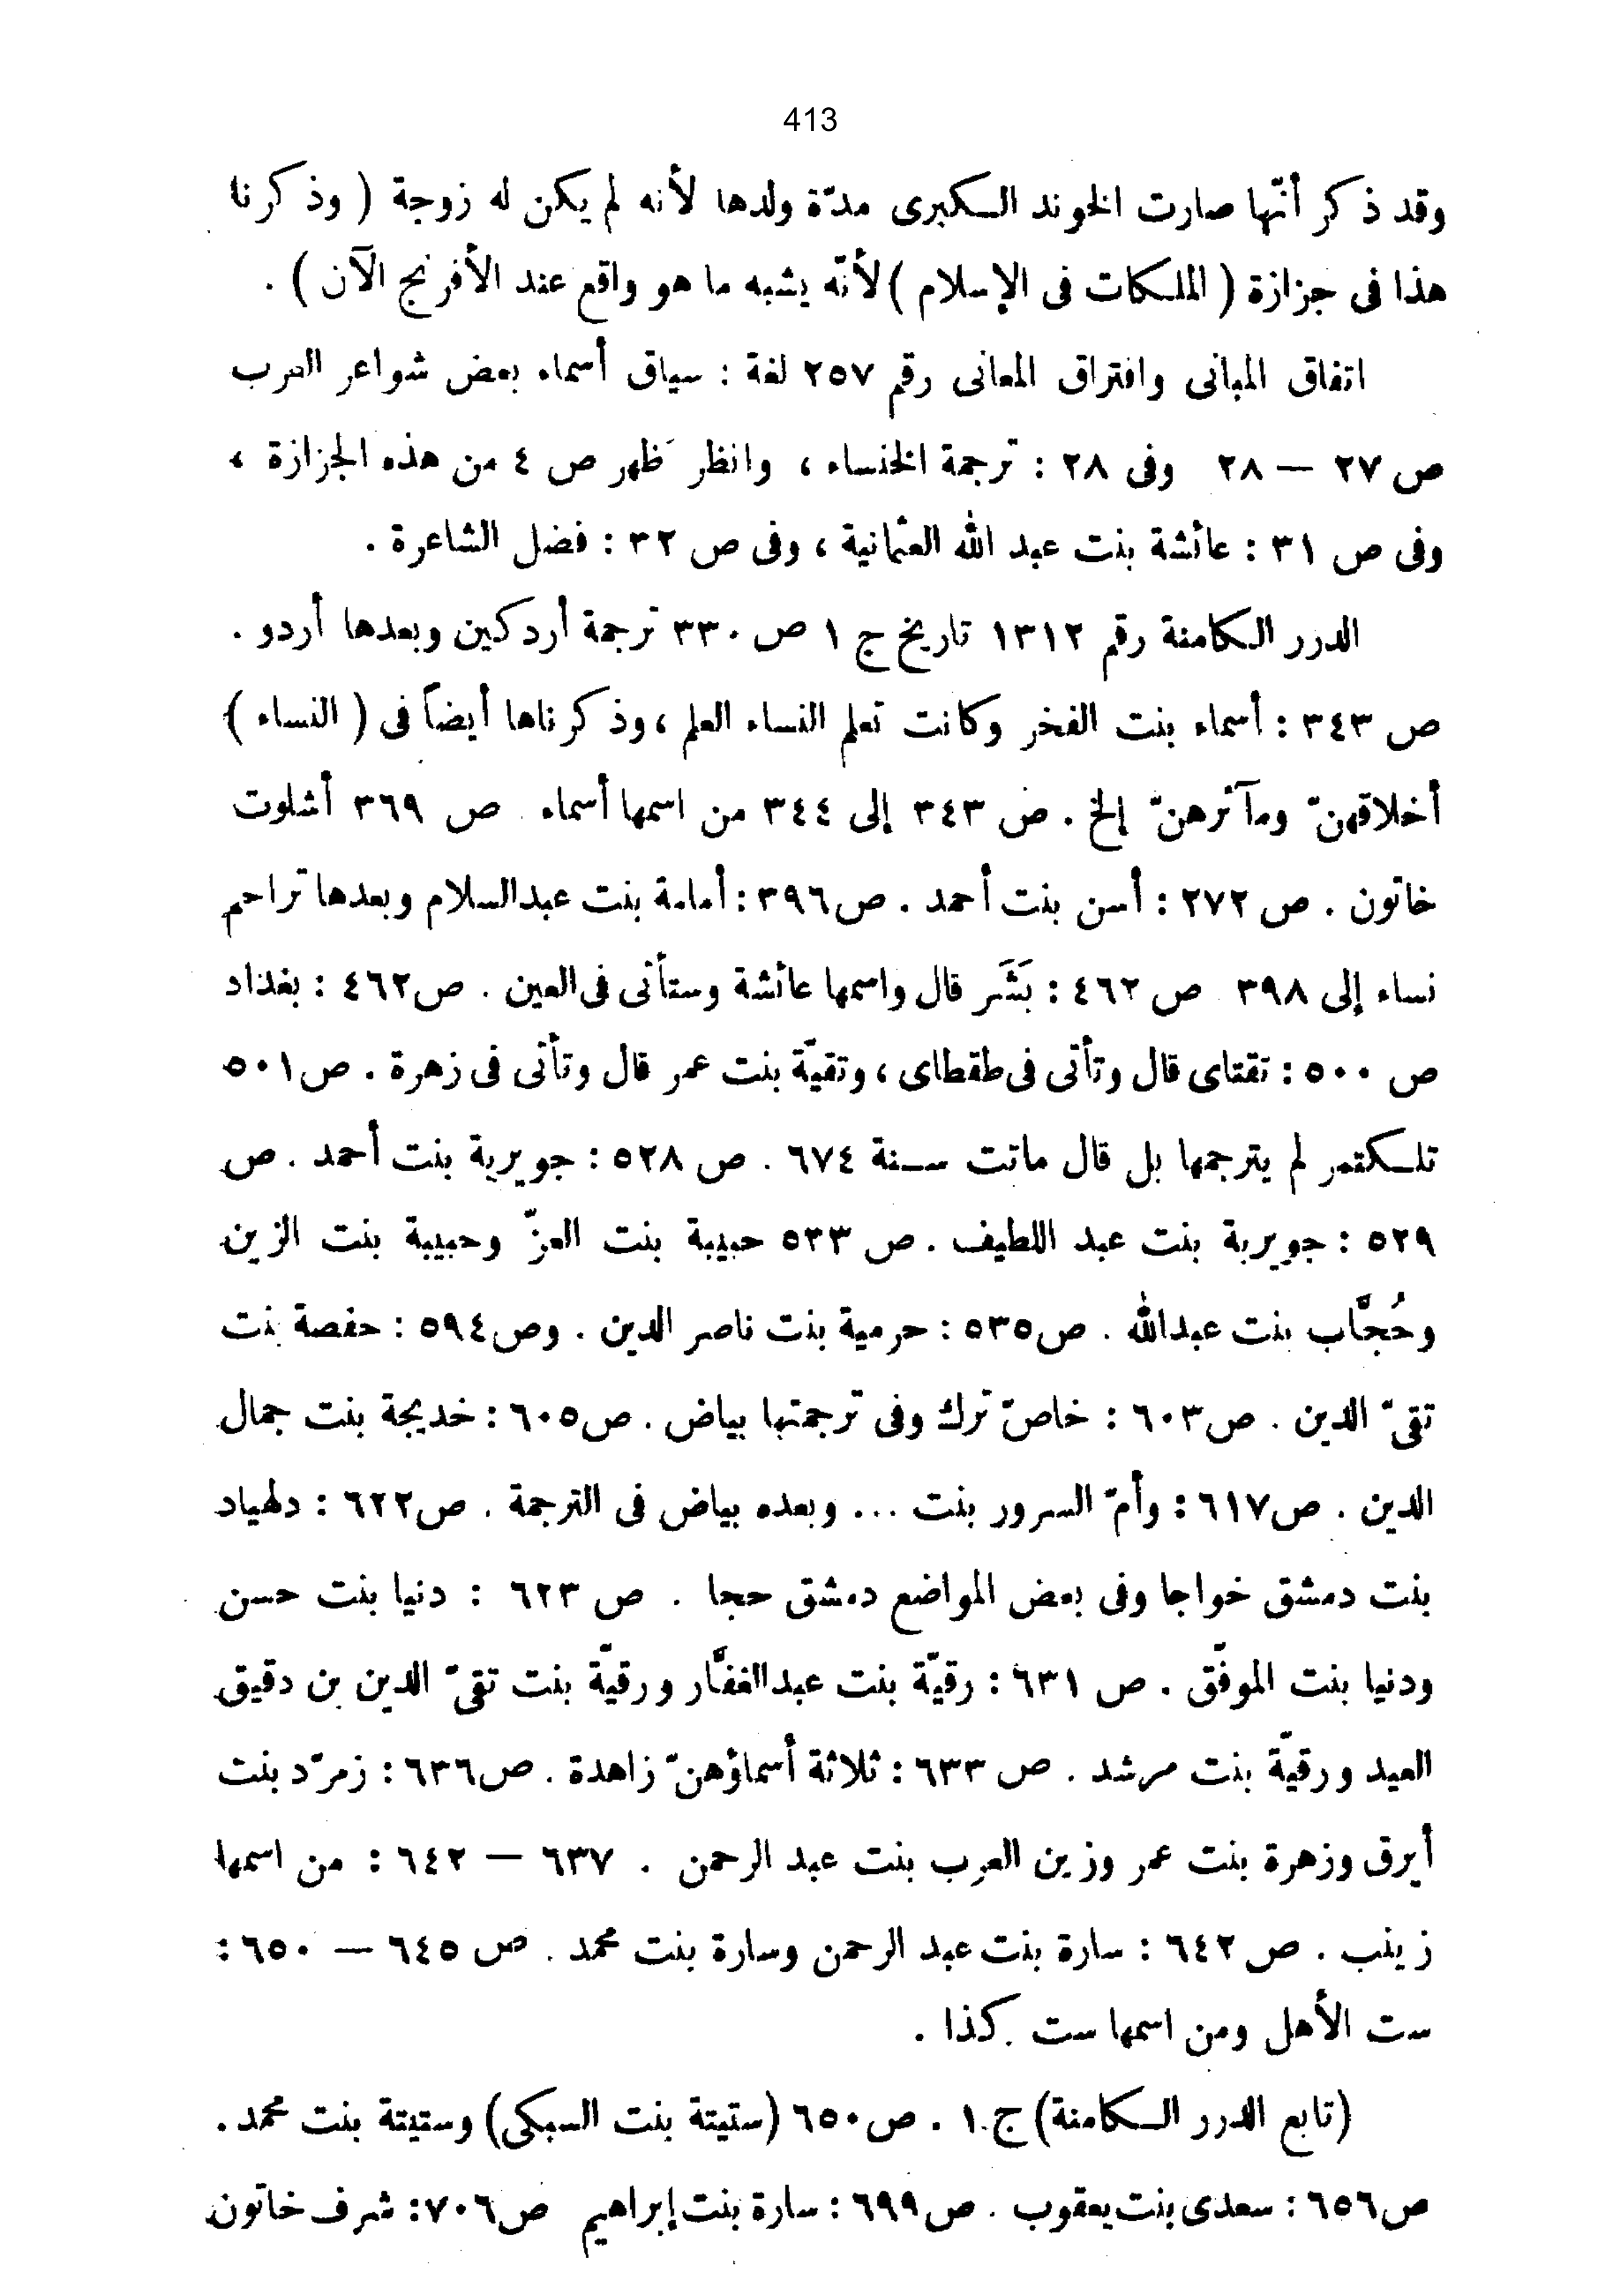 413
وقد ذكر أنّها صارت الخوند الكبرى مدّة ولدها لأنه لم يكن له زوجة ( وذكرنا
هذا فى جزازة ( الملكات فى الإسلام ) لأنّه يشبه ما هو واقع عند الأفرنج الآن ) .
اتفاق المبانى وافتراق المعانى رقم ٢٥٧ لغة : سياق أسماء بعض شواعر العرب
ص ٢٧ — ٢٨ وفى ٢٨ : ترجمة الخنساء ، وانظر ظهر ص ٤ من هذه الجزازة ،
وفى ص ٣١ : عائشة بنت عبد الله العثمانية ، وفى ص ٣٢ : فضل الشاعرة .
الدرر الكامنة رقم ١٣١٢ تاريخ ج ١ ص ٣٣٠ ترجمة أردكين وبعدها أردو .
ص ٣٤٣ : أسماء بنت الفخر وكانت تعلم النساء العلم ، وذكرناها أيضاً فى ( النساء )
أخلاقهنّ ومآثرهنّ إلخ . ص ٣٤٣ إلى ٣٤٤ من اسمها أسماء . ص ٣٦٩ أشلوت
خاتون . ص ٢٧٢ : أسن بنت أحمد . ص ٣٩٦ : أمامة بنت عبدالسلام وبعدها تراحم
نساء إلى ٣٩٨ ص ٤٦٢ : بَشَر قال واسمها عائشة وستأتى فى العين . ص ٤٦٢ : بغداد
ص ٥٠٠ : تقتاى قال وتأتى فى طقطاى ، وتقيّة بنت عمر قال وتأتى فى زهرة . ص ٥٠١
تلكتمر لم يترجمها بل قال ماتت سنة ٦٧٤ . ص ٥٢٨ : جويرية بنت أحمد . ص
٥٢٩ : جويرية بنت عبد اللطيف . ص ٥٣٣ حبيبة بنت العزّ وحبيبة بنت الزين
وحُجَّاب بنت عبدالله . ص ٥٣٥ : حرمية بنت ناصر الدين . وص ٥٩٤ : حفصة بنت
تقىّ الدين . ص ٦٠٣ : خاصّ ترك وفى ترجمتها بياض . ص ٦٠٥ : خديجة بنت جمال
الدين . ص ٦١٧ : وأمّ السرور بنت ... وبعده بياض فى الترجمة . ص ٦٢٢ : دلهياد
بنت دمشق خواجا وفى بعض المواضع دمشق حجا . ص ٦٢٣ : دنيا بنت حسن
ودنيا بنت الموفّق . ص ٦٣١ : رقيّة بنت عبدالغفَّار ورقيّة بنت تقىّ الدين بن دقيق
العيد ورقيّة بنت مرشد . ص ٦٣٣ : ثلاثة أسماؤهنّ زاهدة . ص ٦٣٦ : زمرّد بنت
أيرق وزهرة بنت عمر وزين العرب بنت عبد الرحمن . ٦٣٧ — ٦٤٢ : من اسمها
زينب . ص ٦٤٢ : سارة بنت عبد الرحمن وسارة بنت محمد . ص ٦٤٥ — ٦٥٠ :
ست الأهل ومن اسمها ست كذا .
(تابع الدرر الكامنة) ج ١ . ص ٦٥٠ (ستيتة بنت السبكى) وستيتة بنت محمد .
ص ٦٥٦ : سعدى بنت يعقوب . ص ٦٩٩ : سارة بنت إبراهيم ص ٧٠٦ : شرف خاتون